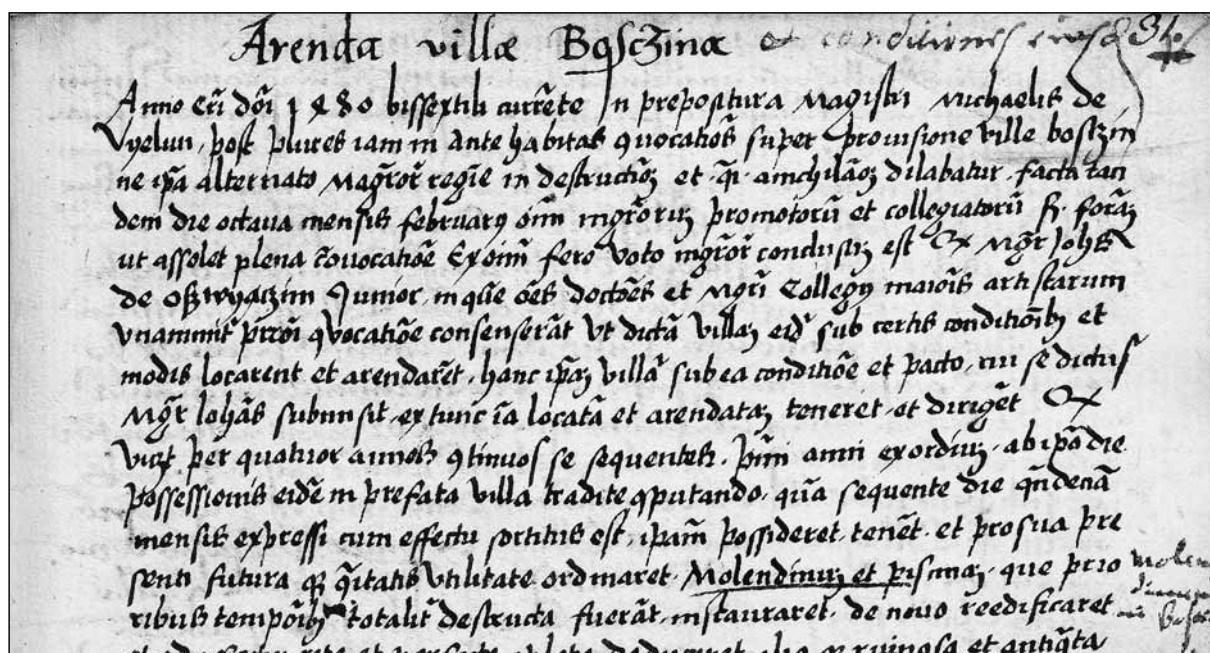 Arenda villæ Bosczina & conditiones eius 81.
Anno Eri dōi 1480 bissextili currēte in prepositura Magistri Michaelis de
Vyelun, post plures iam in ante habitas ꝯvocatiōes super provisione ville bosczin
ne ip̄a alternato Magrōr regīe in destructiōꝫ et qi anichilāōꝫ dilabatur, facta tan
dem die octava mensis februarij om̄ mgrōrū promotorū et collegiatorū
ut assolet plena cōvocatiōe Ex om̄ fero voto mgrōr conclusū est Qꝫ Mgr̄ Johēs
de Osswyaczim Junior, in quē oēs doctōēs et Mgrī Collegij maiōis artistarum
unanimit̄ ꝯvocatiōe consenserāt Vt dictā villaꝫ eid̄ sub certis conditiōibꝫ et
modis locarent et arendarēt, hanc ip̄aꝫ villā sub ea conditiōe et pacto, cui se dictus
Mgr̄ Iohāēs submisit, ex tunc locatā et arendataꝫ teneret, et dirigēt Qꝫ
vicꝫ per quatuor annos ꝯtinuos se sequentes, p̄mi anni exordiuꝫ, ab ip̄a die
possessionis eidē in prefata villa tradite ꝯputando, qūa sequente die qn̄denā
mensis expressi cum effectu sortitus est, ip̄am possideret, tenēt, et pro sua pre
senti futura qꝫ q̄litatis utilitate ordinaret, Molendinuꝫ et piscinaꝫ, que prio molen
ribus tempōibꝫ totalit̄ destructa fuerāt, instauraret, de novo reedificaret
ruinosa et antiq̄ta